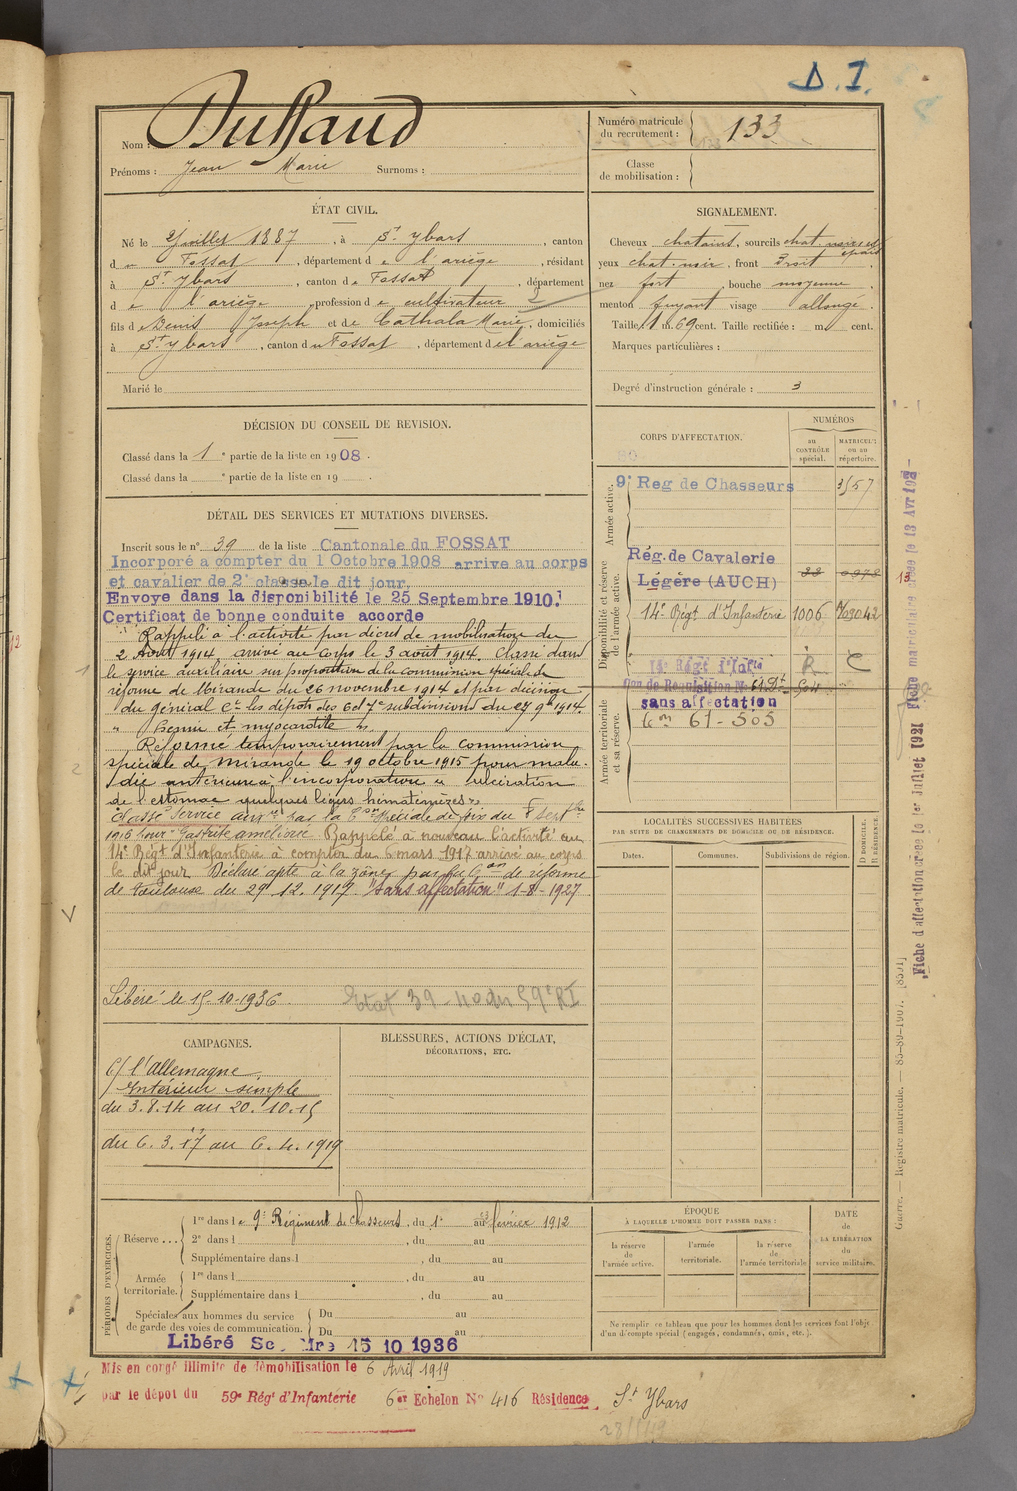 D. I.
Nom : Dussaud
Prénoms : Jean Marie Surnoms :
Numéro matricule du recrutement : 133
Classe de mobilisation :
ÉTAT CIVIL.
Né le 2 juillet 1887, à St Ybars, canton
du Fossat, département de l'ariège, résidant
à St Ybars, canton de Fossat, département
de l'ariège, profession de cultivateur
fils de Denis Joseph et de Cathala Marie, domiciliés
à St Ybars, canton du Fossat, département de l'ariège
Marié le
SIGNALEMENT.
Cheveux chatains, sourcils chat. noirs et épais
yeux chat. noir, front Droit,
nez fort, bouche moyenne,
menton fuyant visage allongé.
Taille 1 m. 69 cent. Taille rectifiée : m cent.
Marques particulières :
Degré d'instruction générale : 3
DÉCISION DU CONSEIL DE REVISION.
Classé dans la 1e partie de la liste en 1908.
Classé dans la e partie de la liste en 19 .
DÉTAIL DES SERVICES ET MUTATIONS DIVERSES.
Inscrit sous le n° 39 de la liste Cantonale du FOSSAT
Incorporé a compter du 1 Octobre 1908 arrive au corps
et cavalier de 2e classe le dit jour.
Envoye dans la disponibilité le 25 Septembre 1910.
Certificat de bonne conduite accorde
Rappelé à l'activité par décret de mobilisation du
2 Août 1914, arrivé au Corps le 3 août 1914. Classé dans
le service auxiliaire sur proposition de la commission spéciale de
réforme de Mirande du 26 novembre 1914 et par décision
du général Ct les dépôts des 6 et 7e subdivisions du 27 9bre 1914.
" Hernie et myocardite ".
Réformé temporairement par la commission
spéciale de Mirande le 19 octobre 1915 pour mala-
die antérieure à l'incorporation " ulcération
de l'estomac quelques légers hématémèses ".
Classé Service auxre par la Con spéciale de Foix du 8 septbre
1916 pour "Gastrite améliorée. Rappelé à nouveau l'activité au
14e Régt d'Infanterie à compter du 6 mars 1917 arrivé au corps
le dit jour. Déclaré apte à la zone, par la Con de réforme
de Toulouse du 29.12.1917. "Sans affectation" 1-8-1927
Libéré le 15-10-1936.
Etat 39-40 du 59e RI
CORPS D'AFFECTATION.
NUMÉROS
au CONTRÔLE spécial.
MATRICULE ou au répertoire.
Armée active.
9e Reg de Chasseurs 3157
Disponibilité et réserve de l'armée active.
Rég. de Cavalerie
Légère (AUCH)
14e Régt d'Infanterie 1006
R C
Armée territoriale et sa réserve.
14e Régt d'Infie
sans affectation
61-505
LOCALITÉS SUCCESSIVES HABITÉES
PAR SUITE DE CHANGEMENTS DE DOMICILE OU DE RÉSIDENCE.
Dates. Communes. Subdivisions de région. D DOMICILE. R RÉSIDENCE.
CAMPAGNES.
C/ l'Allemagne
Intérieur simple
du 3.8.14 au 20.10.15
du 6.3.17 au 6.4.1919
BLESSURES, ACTIONS D'ÉCLAT,
DÉCORATIONS, ETC.
PÉRIODES D'EXERCICES.
Réserve ...
1re dans le 9e Régiment de chasseurs, du 1er au 23 février 1912
2e dans l , du au
Supplémentaire dans l , du au
Armée territoriale.
1re dans l , du au
Supplémentaire dans l , du au
Spéciales aux hommes du service de garde des voies de communication.
Du au
Du au
Libéré Sce Mre 15 10 1936
ÉPOQUE
À LAQUELLE L'HOMME DOIT PASSER DANS :
la réserve de l'armée active.
l'armée territoriale.
la réserve de l'armée territoriale
DATE de LA LIBÉRATION du service militaire.
Ne remplir ce tableau que pour les hommes dont les services font l'objet
d'un décompte spécial (engagés, condamnés, omis, etc.).
Mis en congé illimité de démobilisation le 6 Avril 1919
par le dépôt du 59e Régt d'Infanterie 6er Echelon No 416 Résidence St Ybars
Guerre. — Registre matricule.